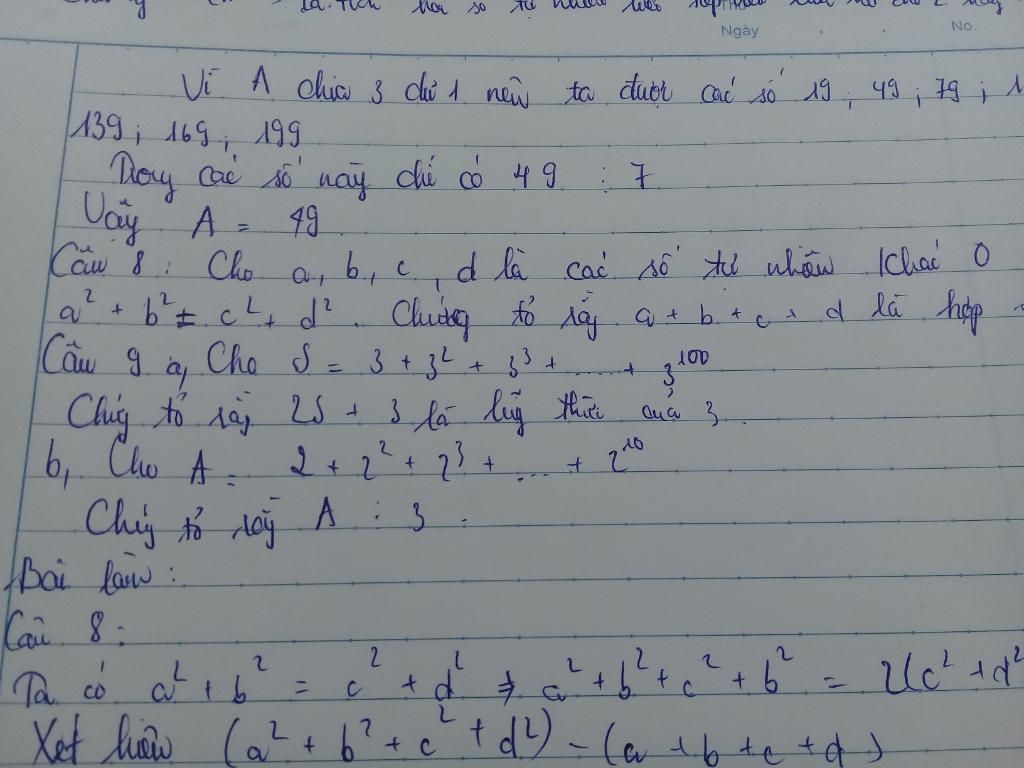 là tích hai số tự nhiên liên tiếp
Ngày No.
Vì A chia 3 dư 1 nên ta được các số 19 ; 49 ; 79 ; 1
139 ; 169 ; 199
Trong các số này chỉ có 49 : 7
Vậy A = 49
Câu 8 : Cho a, b, c, d là các số tự nhiên khác 0
a² + b² = c² + d². Chứng tỏ rằng a + b + c + d là hợp
Câu 9 a, Cho S = 3 + 3² + 3³ + ..... + 3¹⁰⁰
Chứng tỏ rằng 2S + 3 là lũy thừa của 3.
b, Cho A = 2 + 2² + 2³ + ... + 2¹⁰
Chứng tỏ rằng A : 3 .
Bài làm :
Câu 8 :
Ta có a² + b² = c² + d² ⇒ a² + b² + c² + b² = 2(c² + d²
Xét hiệu (a² + b² + c² + d²) - (a + b + c + d)